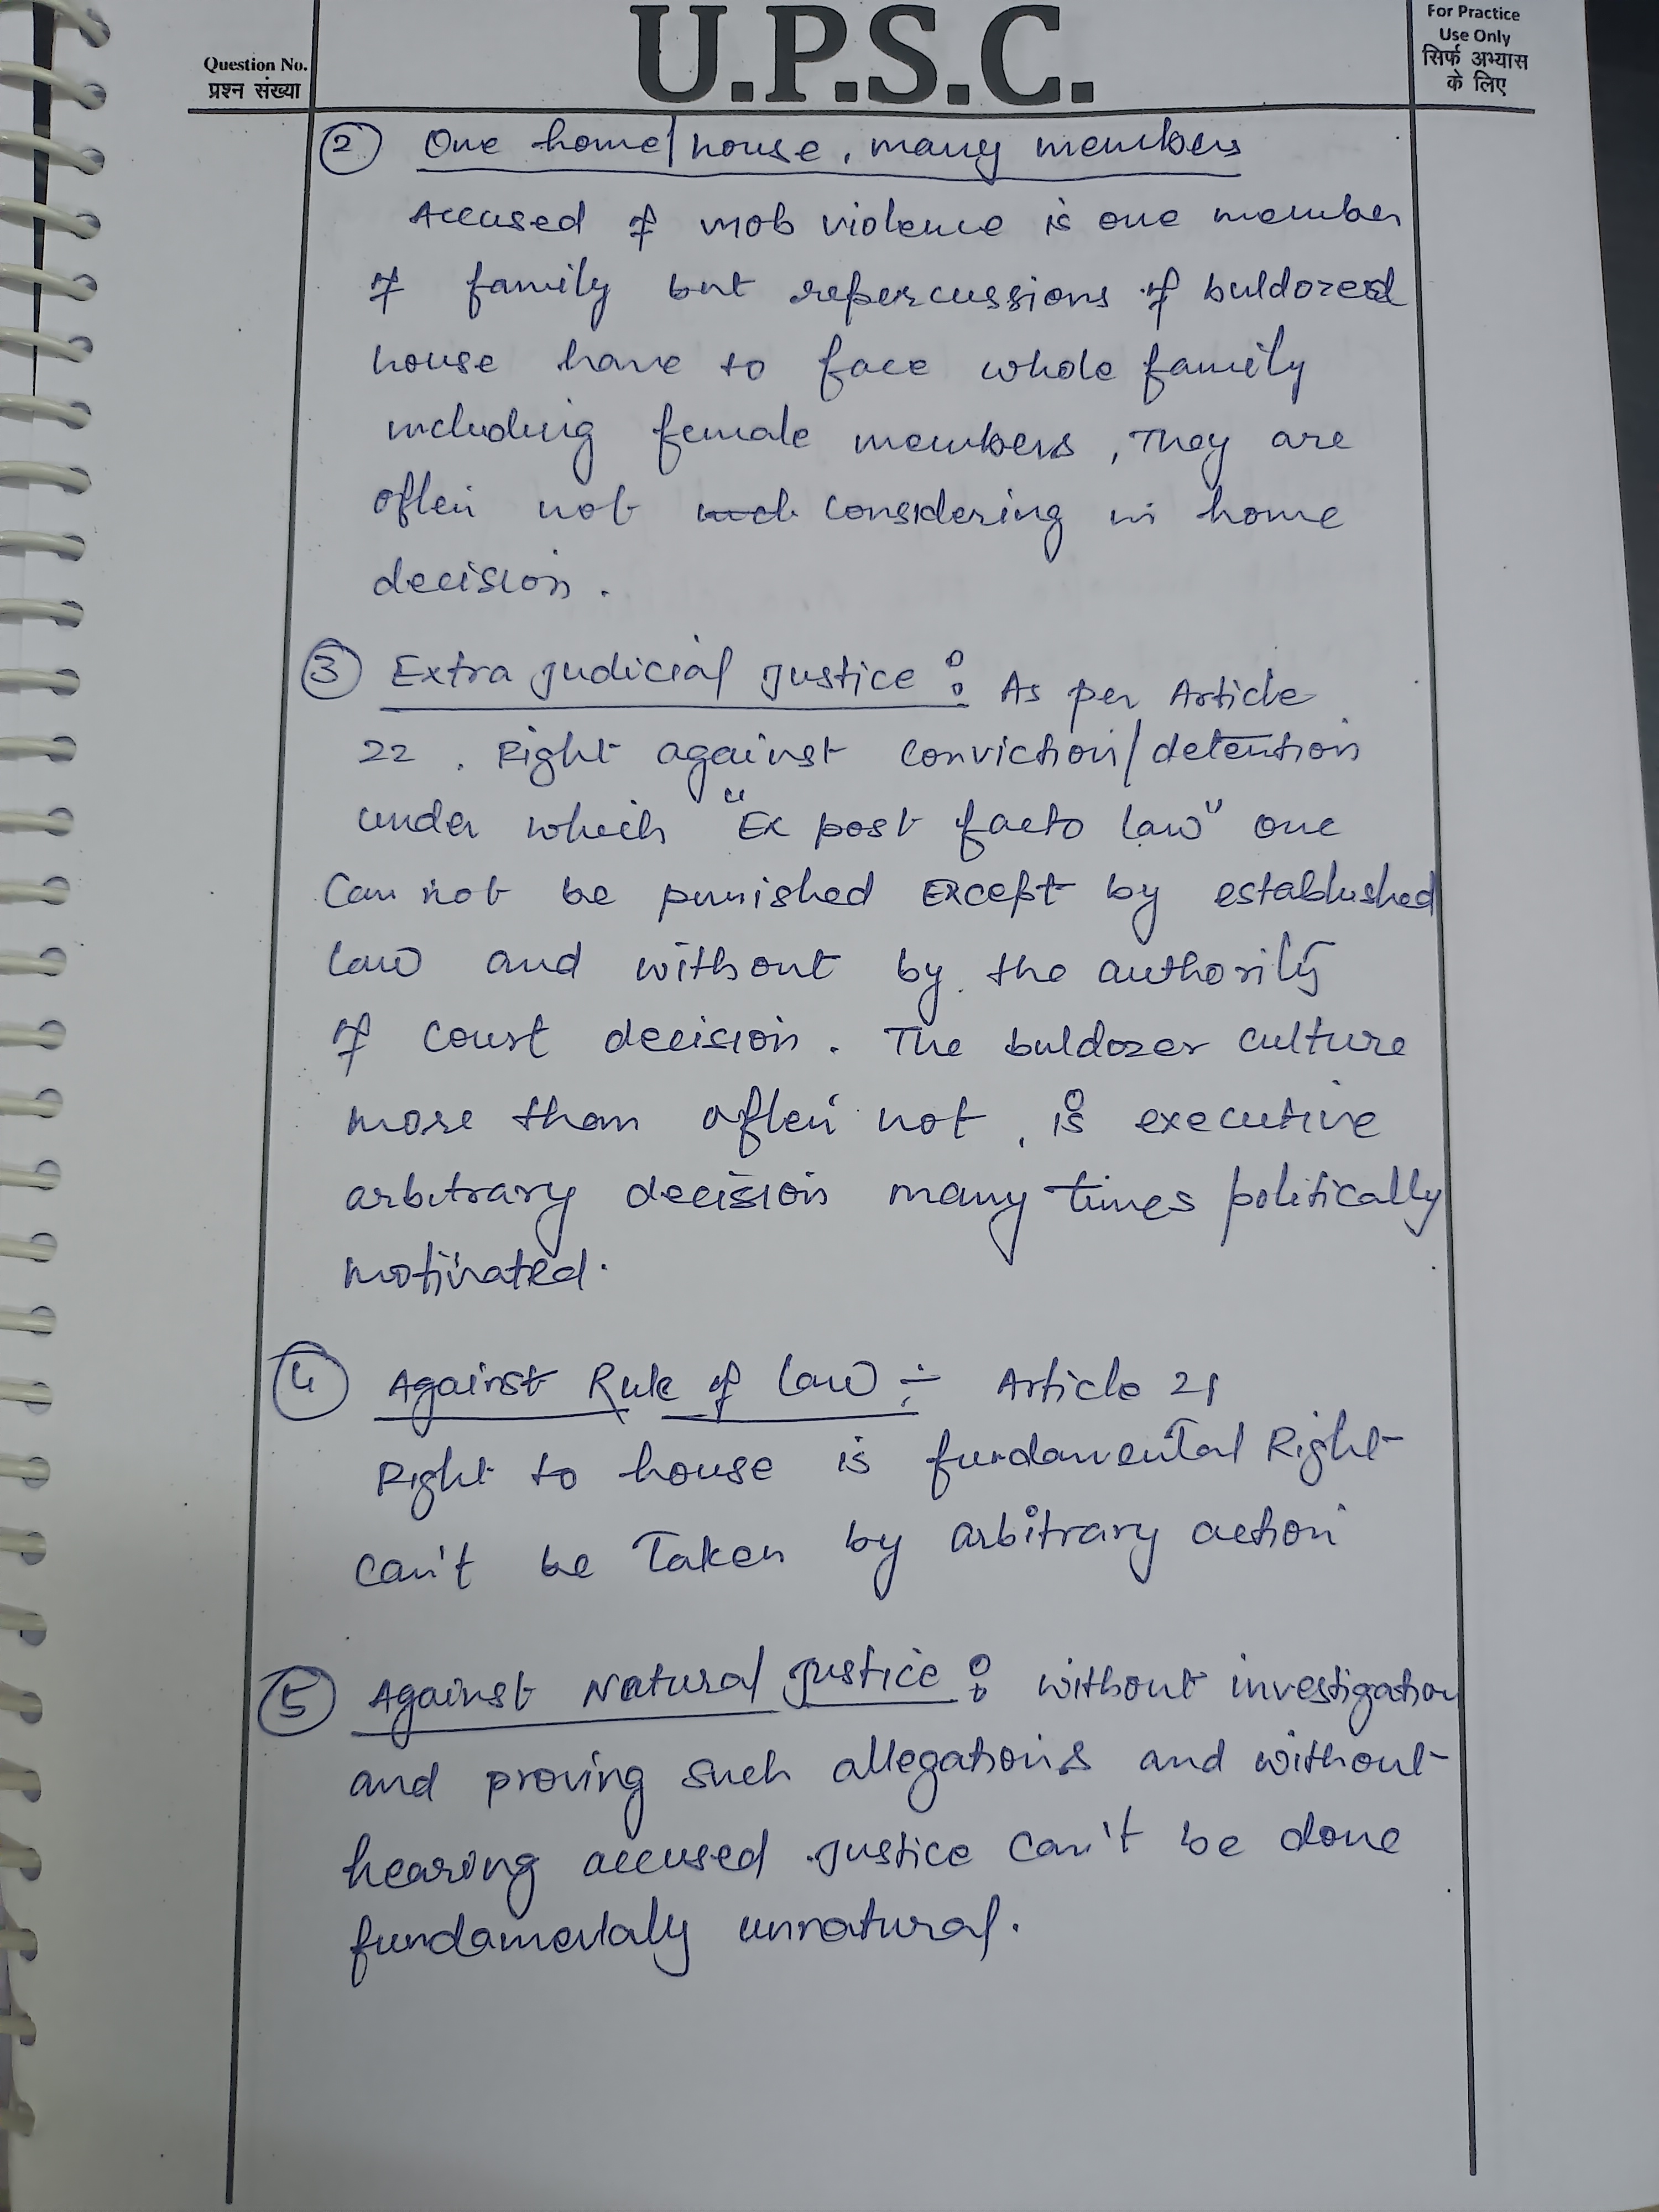 U.P.S.C.
Question No.
प्रश्न संख्या
For Practice
Use Only
सिर्फ अभ्यास
के लिए
② One home/house, many members
Accused of mob violence is one member
of family but repercussions of buldozed
house have to face whole family
including female members, They are
often not considering in home
decision.
③ Extra judicial justice : As per Article
22. Right against conviction/detention
under which "Ex post facto law" one
Can not be punished Except by established
law and without by the authority
of court decision. The buldozer culture
more than often not, is executive
arbitrary decision many times politically
motivated.
④ Against Rule of law :- Article 21
Right to house is fundamental Right
can't be Taken by arbitrary action
⑤ Against Natural justice : without investigation
and proving such allegations and without
hearing accused justice can't be done
fundamentaly unnatural.